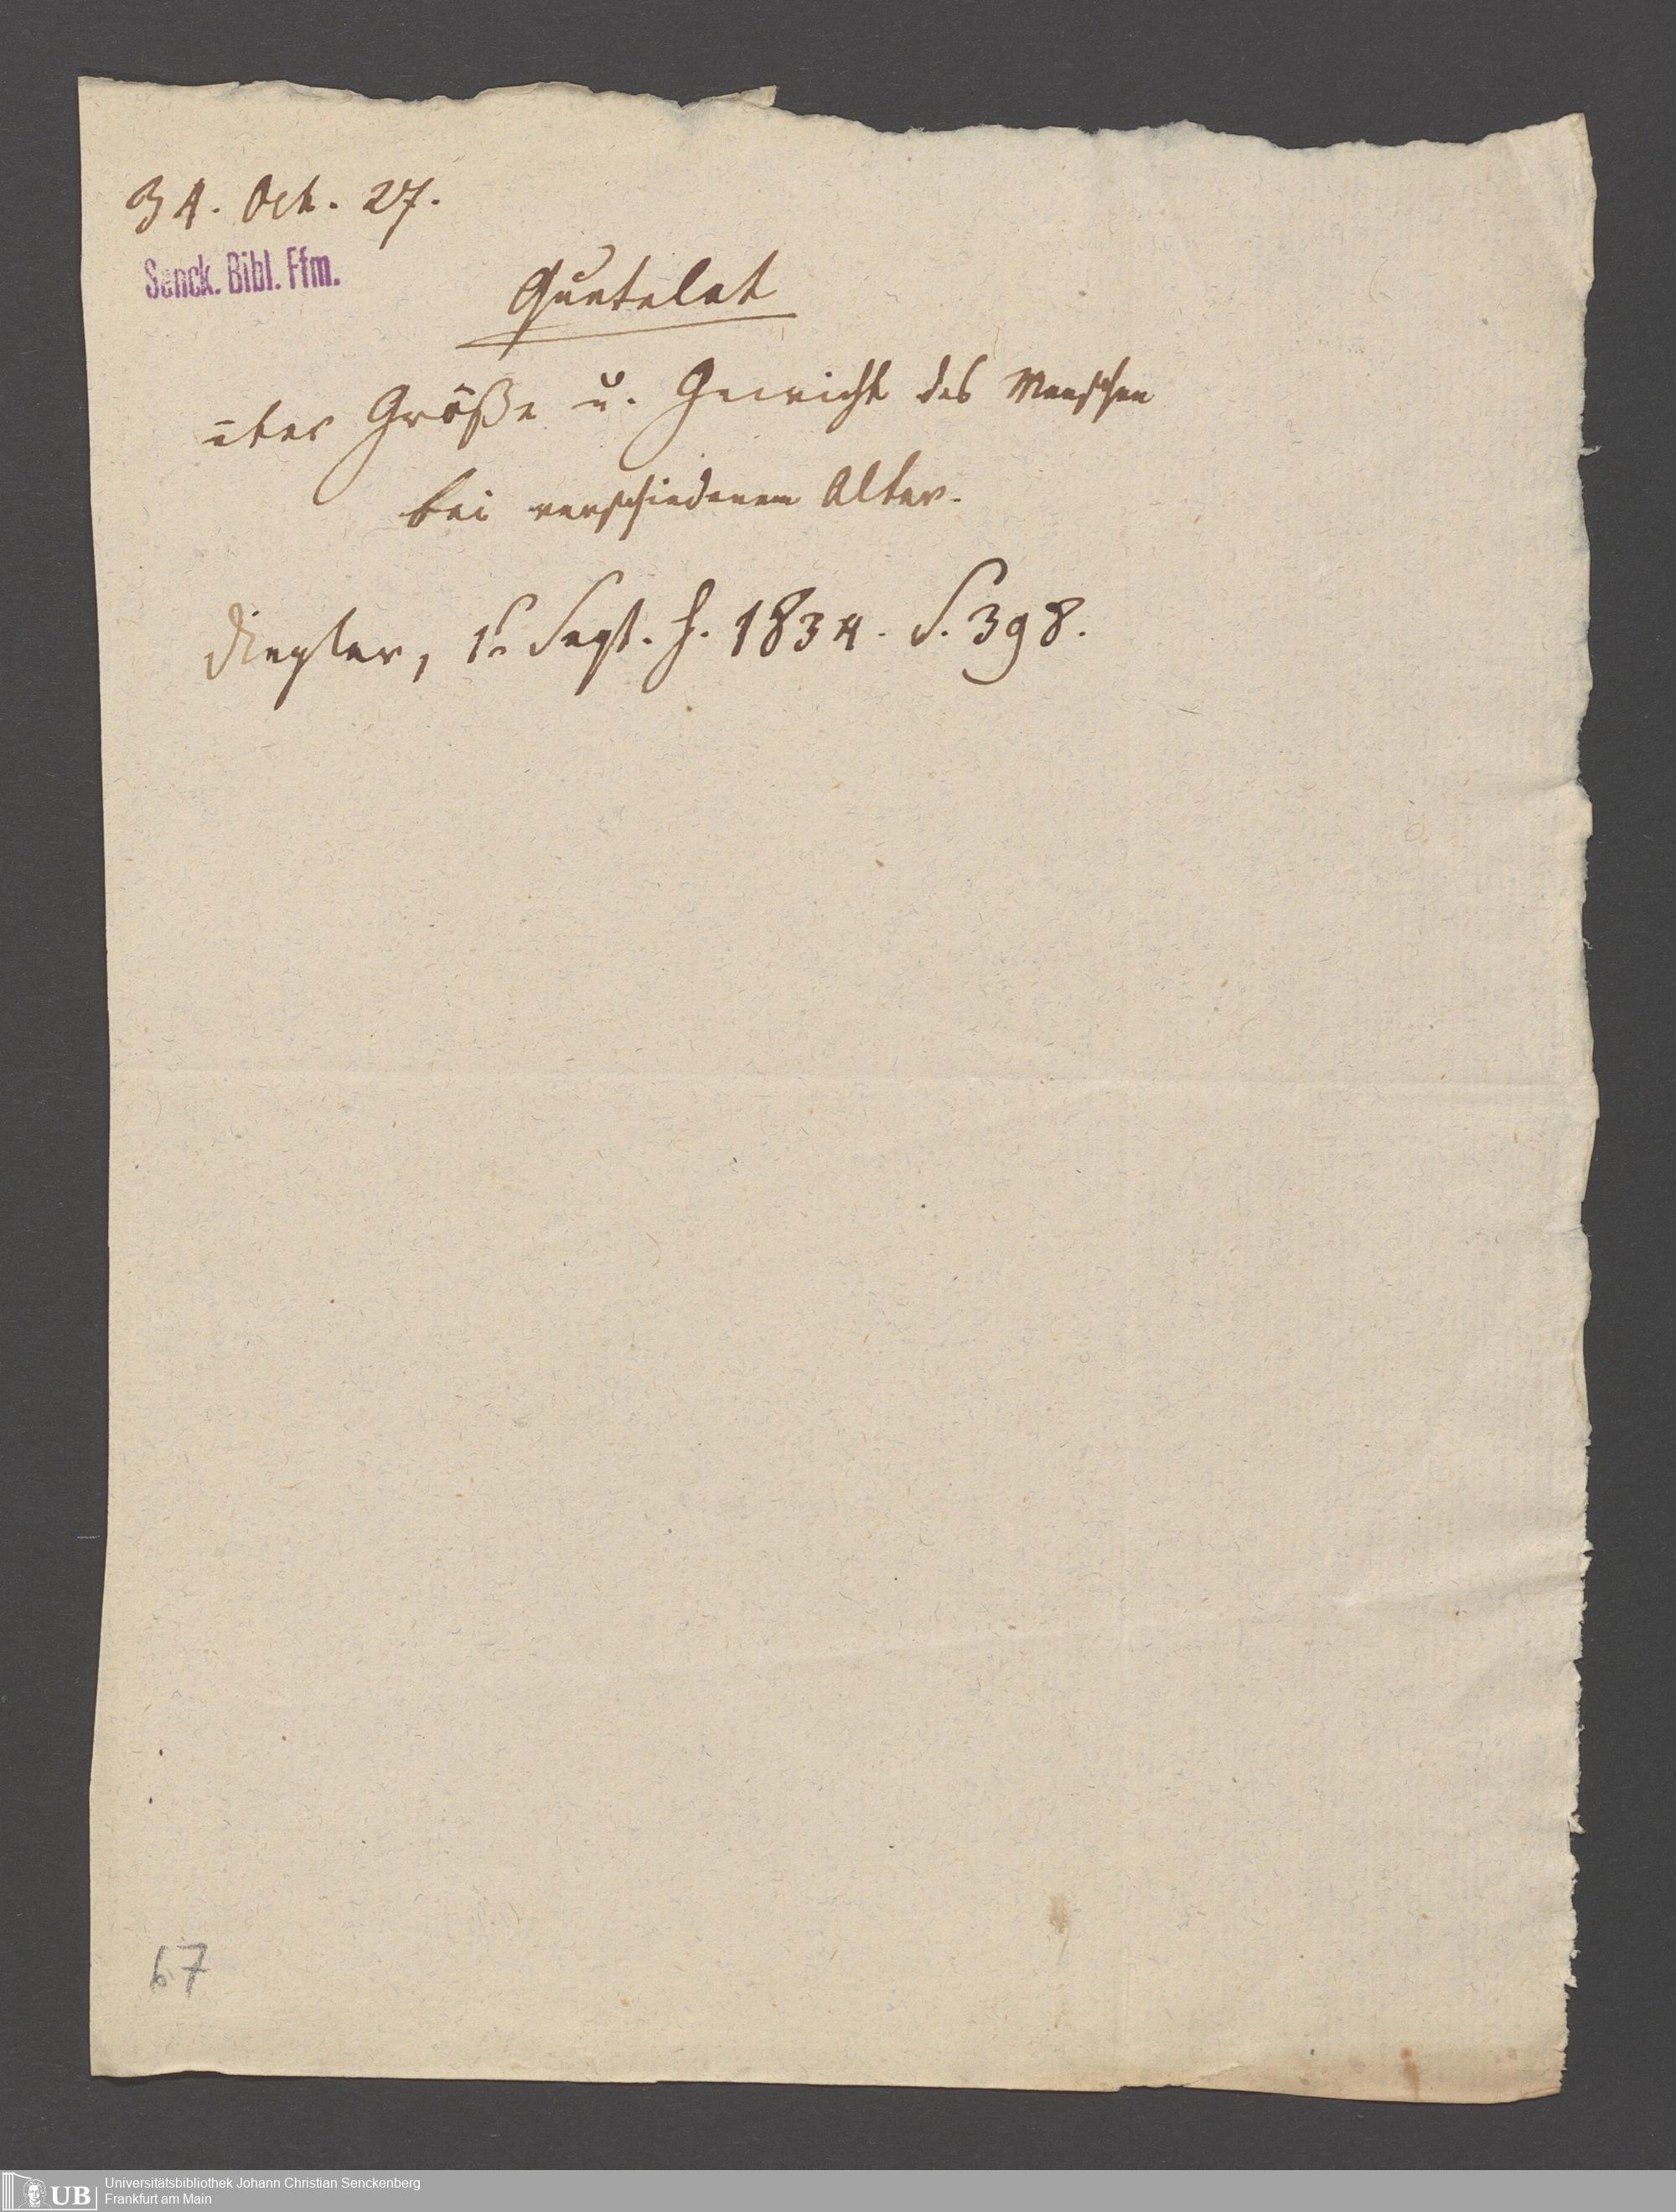 34. Oct. 27.
Senck. Bibl. Ffm.
Quetelet
über Größe u. Gewicht des Menschen
bei verschiedenem Alter.
Dingler, 1s Sept. H. 1834. S. 398.
67
UB
Universitätsbibliothek Johann Christian Senckenberg
Frankfurt am Main